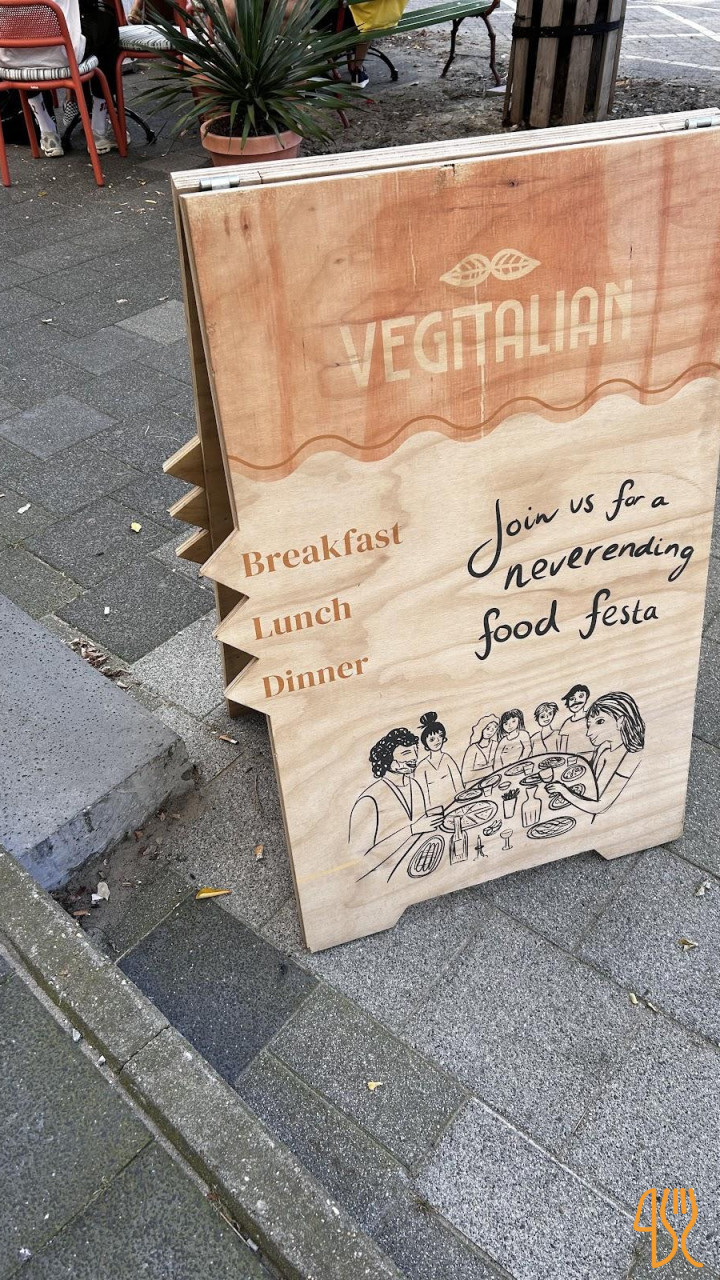 VEGiTALIAN
Breakfast
Lunch
Dinner
Join us for a
neverending
food festa